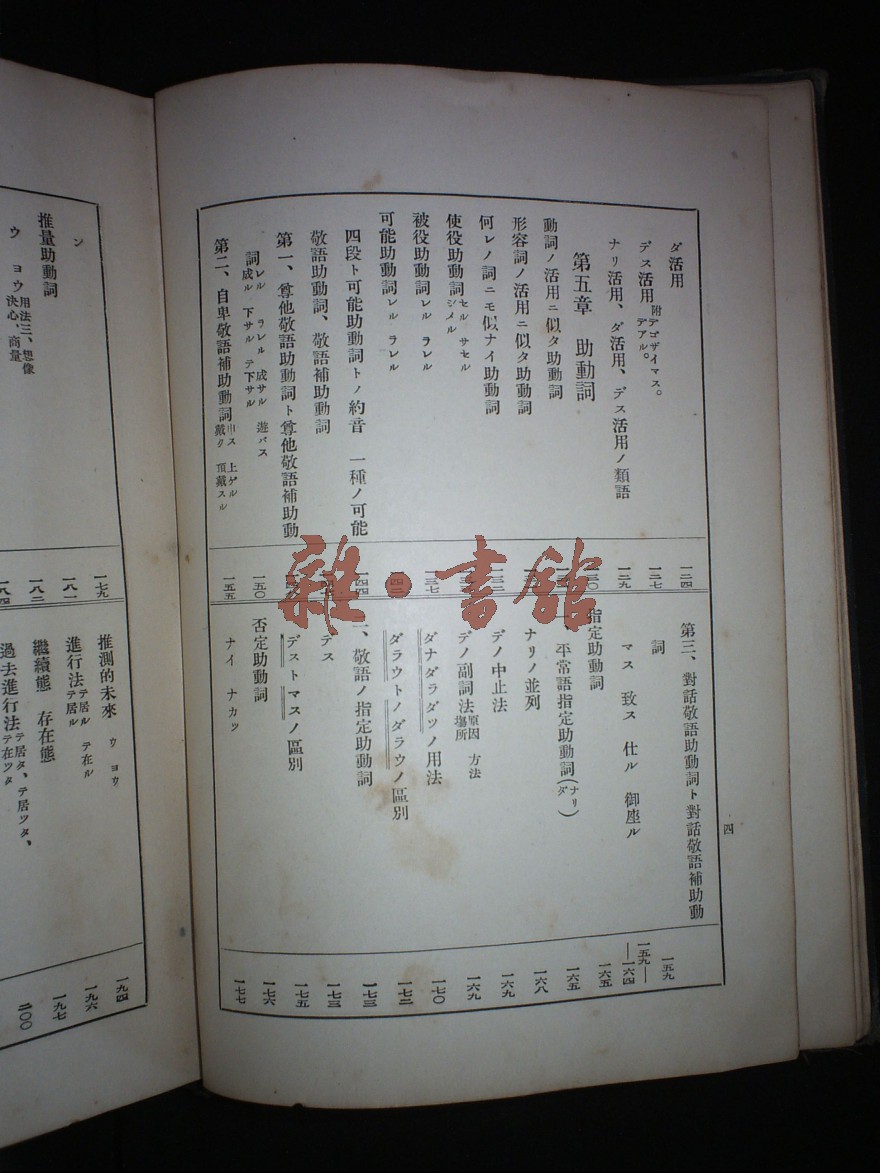 ダ活用
デス活用 附テゴザイマス。デアル。
ナリ活用、ダ活用、デス活用ノ類語
第五章 助動詞
動詞ノ活用ニ似タ助動詞
形容詞ノ活用ニ似タ助動詞
何レノ詞ニモ似ナイ助動詞
使役助動詞 セル サセル シメル
被役助動詞 レル ラレル
可能助動詞 レル ラレル
四段ト可能助動詞トノ約音 一種ノ可能
敬語助動詞、敬語補助動詞
第一、尊他敬語助動詞ト尊他敬語補助動
詞 レル ラレル 成サル 遊バス 成ル 下サル テ下サル
第二、自卑敬語補助動詞 申ス 上ゲル 戴ク 頂戴スル
一二四
一二七
一二九
一三七
一五〇
一五五
第三、對話敬語助動詞ト對話敬語補助動
詞
マス 致ス 仕ル 御座ル
指定助動詞
平常語指定助動詞(ナリ ダ)
ナリノ並列
デノ中止法
デノ副詞法 原因 方法 場所
ダナダラダツノ用法
ダラウトノダラウノ區別
、敬語ノ指定助動詞
デス
デストマスノ區別
否定助動詞
ナイ ナカツ
一五九
一五九—一六四
一六五
一六五
一六八
一六九
一六九
一七〇
一七二
一七三
一七三
一七五
一七六
一七七
四
ン
推量助動詞
ウ ヨウ 用法三、想像 決心、商量
一七九
一八一
一八二
一八四
推測的未來 ウ ヨウ
進行法 テ居ル テ在ル テ居ル
繼續態 存在態
過去進行法 テ居タ、テ居ツタ、テ在ツタ
一九四
一九六
一九七
二〇〇
雜·書館